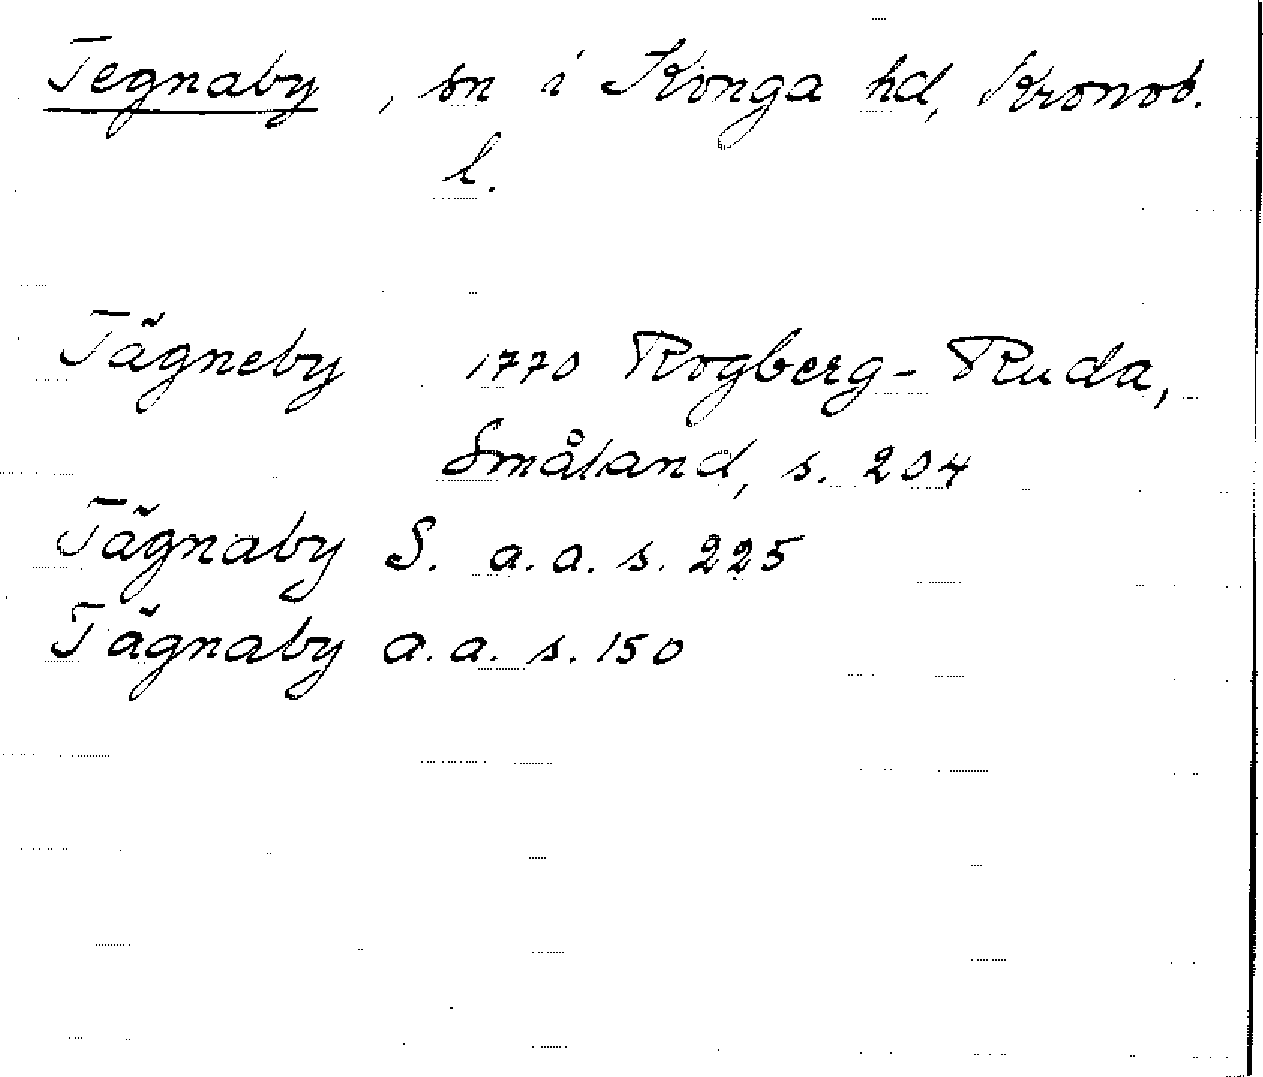 Tegnaby, sn i Konga hd, Kronob.
l.
Tägneby 1770 Rogberg-Ruda,
Småland, s. 204
Tägnaby S. a.a. s. 225
Tägnaby a.a. s. 150